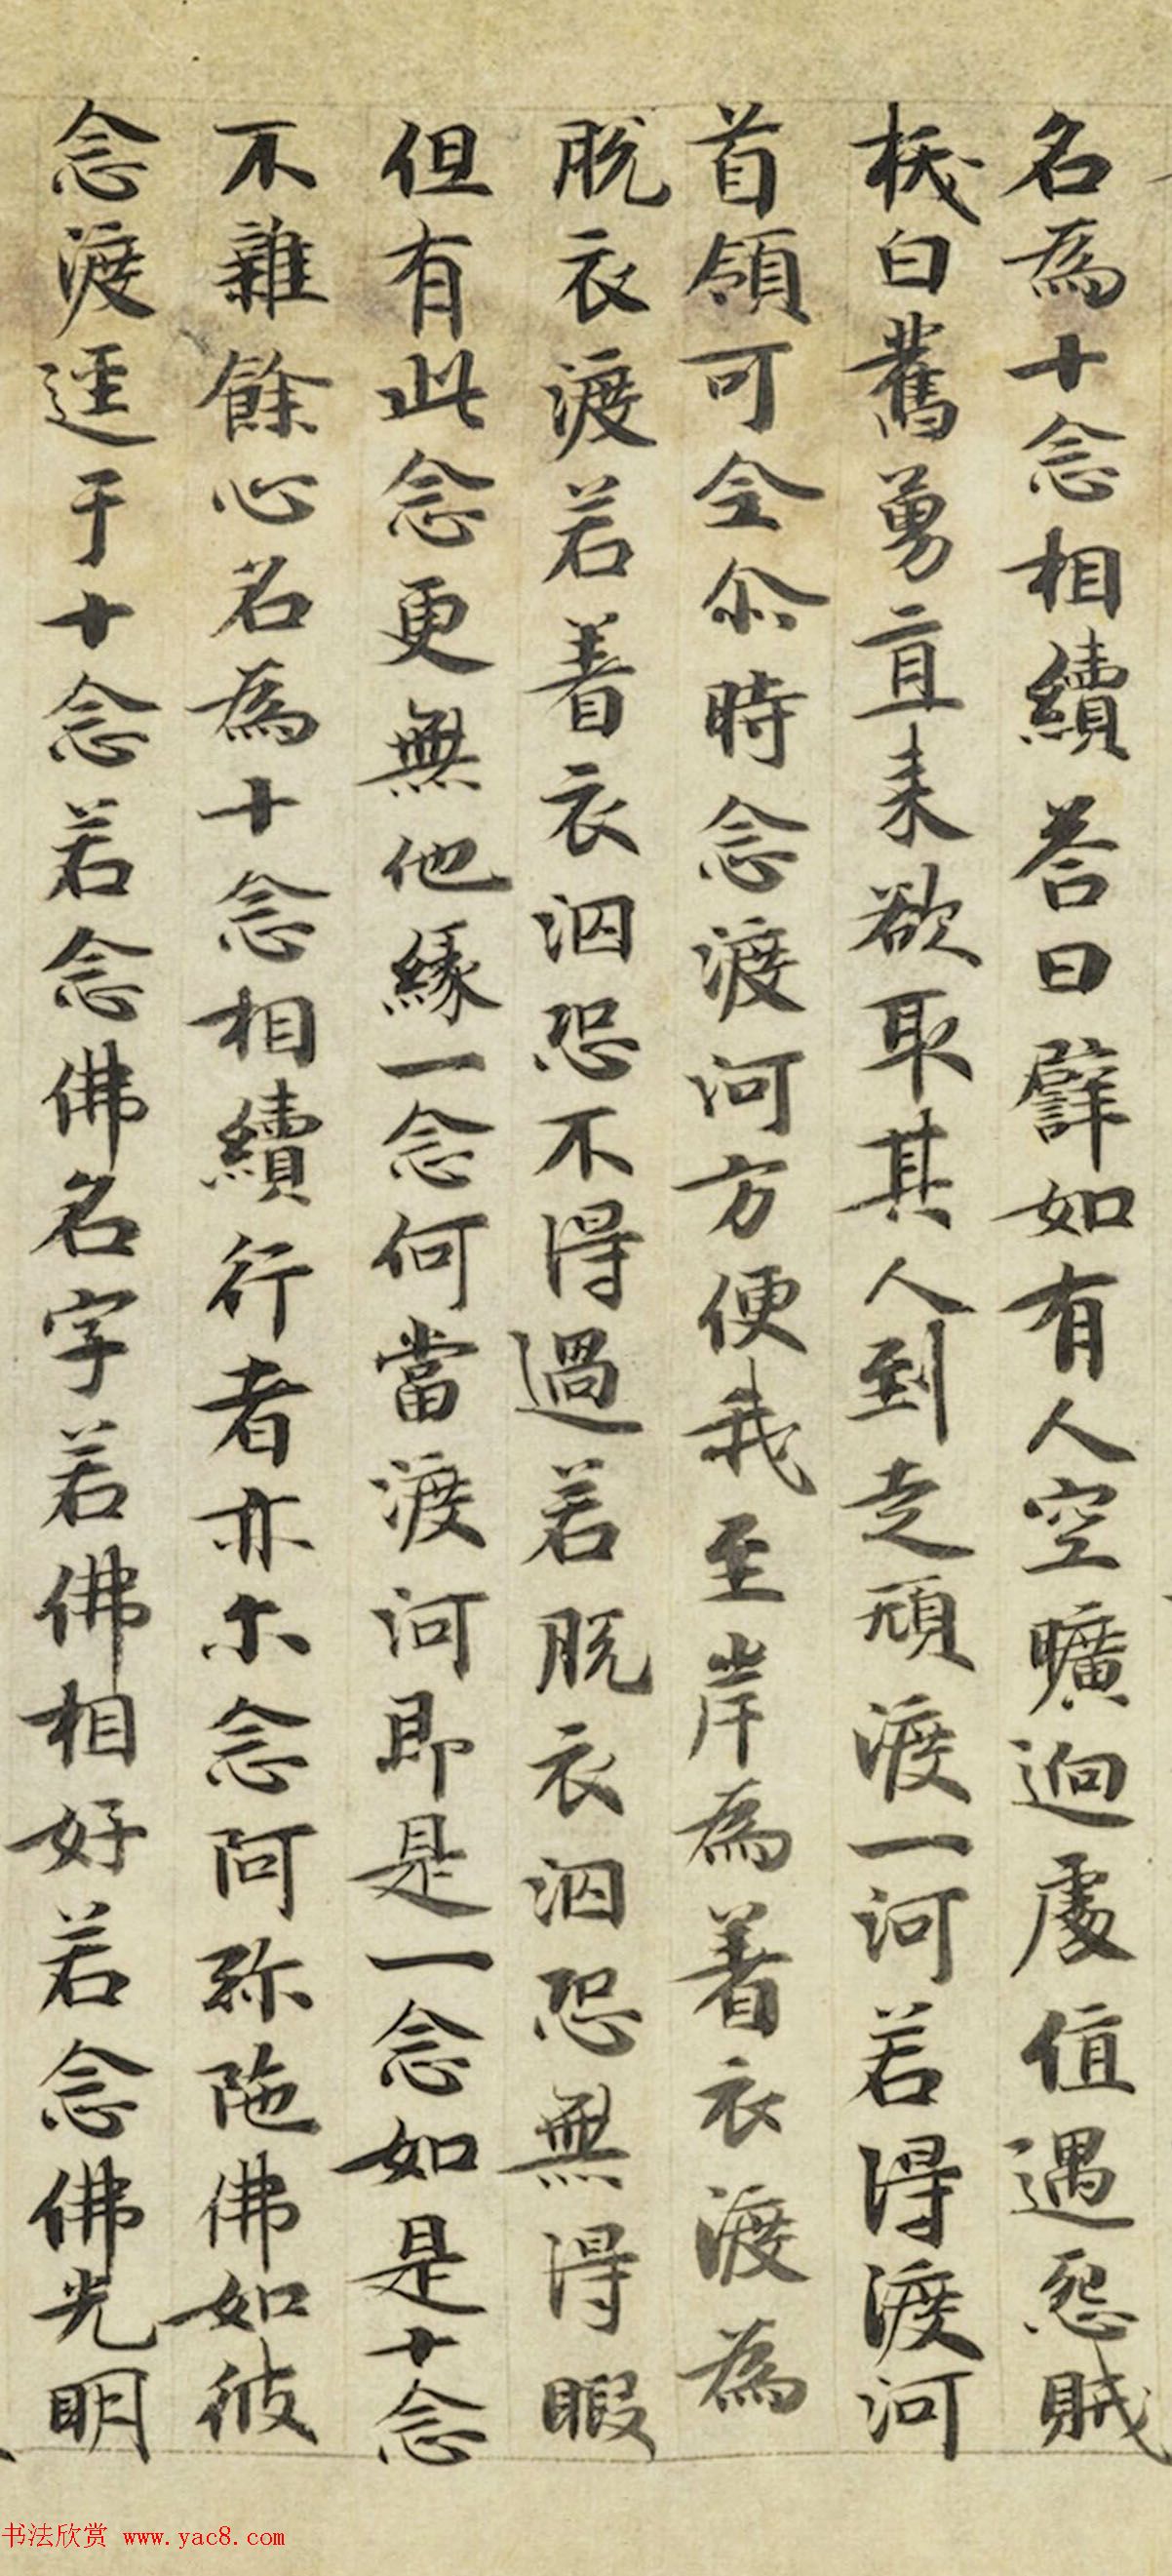 名為十念相續荅曰譬如有人空曠逈處值遇怨賊
拔白舊勇直来欲取其人到走頑渡一河若得渡河
首領可全尒時念渡河方便我至岸為著衣渡為
脫衣渡若著衣泅恐不得過若脫衣泅恐無得暇
但有此念更無他緣一念何當渡河即是一念如是十念
不雜餘心名為十念相續行者亦尒念阿弥陁佛如彼
念渡逕于十念若念佛名字若佛相好若念佛光明
书法欣赏 www.yac8.com